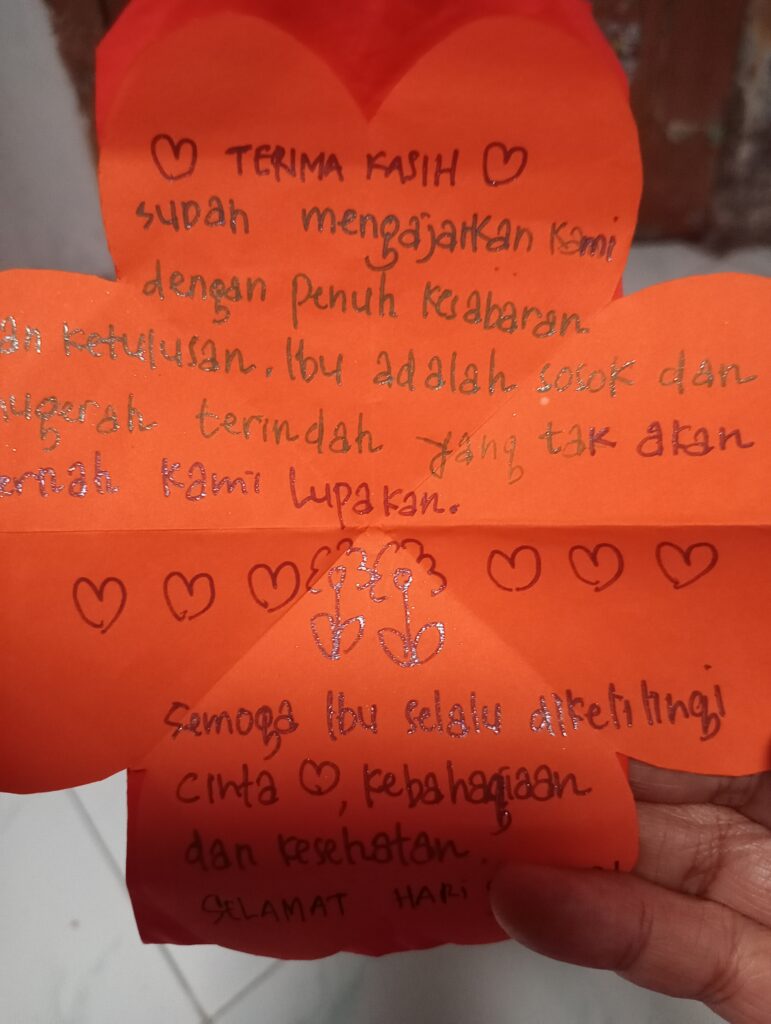 TERIMA KASIH
sudah mengajarkan kami
dengan penuh kesabaran
an ketulusan. Ibu adalah sosok dan
nugerah terindah yang tak akan
ernah kami lupakan.
Semoga Ibu selalu dikelilingi
cinta, kebahagiaan
dan kesehatan.
SELAMAT HARI